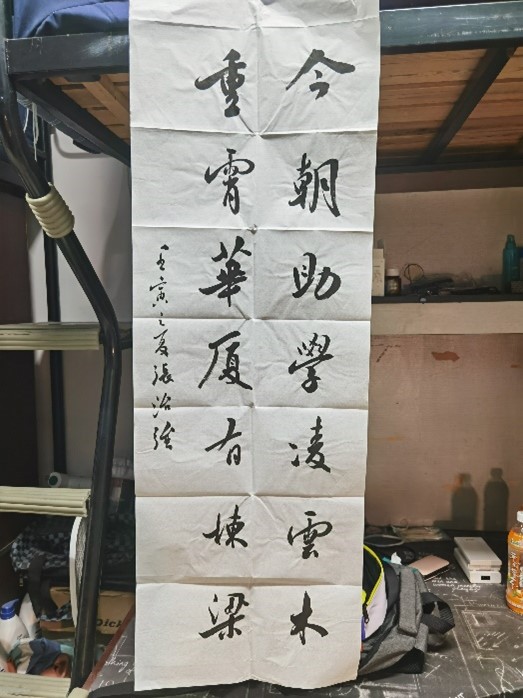 今朝助學凌雲木
重霄華厦有棟梁
壬寅之夏張治強